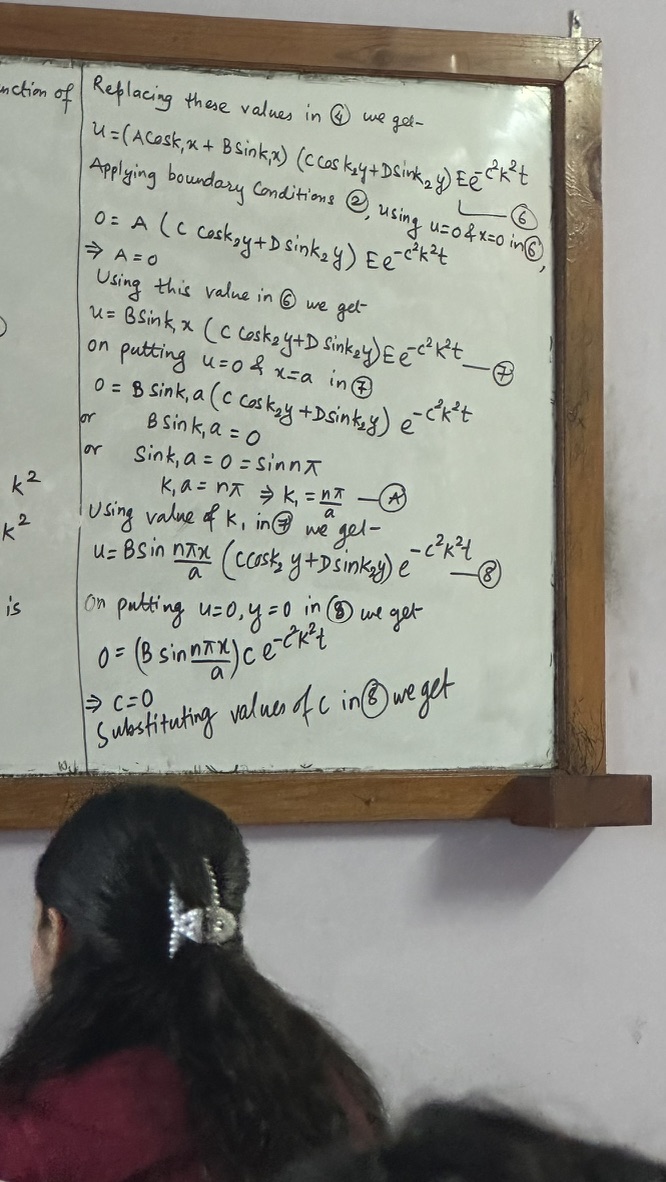 nction of
k²
k²
is
Replacing these values in ④ we get-
u=(Acosk₁x + Bsink₁x) (Ccosk₂y+Dsink₂y) Ee^-c²k²t —⑥
Applying boundary conditions ②, using u=0 & x=0 in ⑥,
0= A (C cosk₂y+Dsink₂y) Ee^-c²k²t
⇒ A=0
Using this value in ⑥ we get-
u= Bsink₁x (C cosk₂y+D sink₂y)Ee^-c²k²t —⑦
on putting u=0 & x=a in ⑦
0= Bsink₁a (C cosk₂y+Dsink₂y) e^-c²k²t
or Bsink₁a=0
or Sink₁a=0=sinnπ
k₁a=nπ ⇒ k₁=nπ/a —Ⓐ
Using value of k₁ in ⑦ we get-
u=BSin nπx/a (Ccosk₂y+Dsink₂y) e^-c²k²t —⑧
On putting u=0, y=0 in ⑧ we get-
0= (B sin nπx/a) C e^-c²k²t
⇒ C=0
Substituting values of C in ⑧ we get